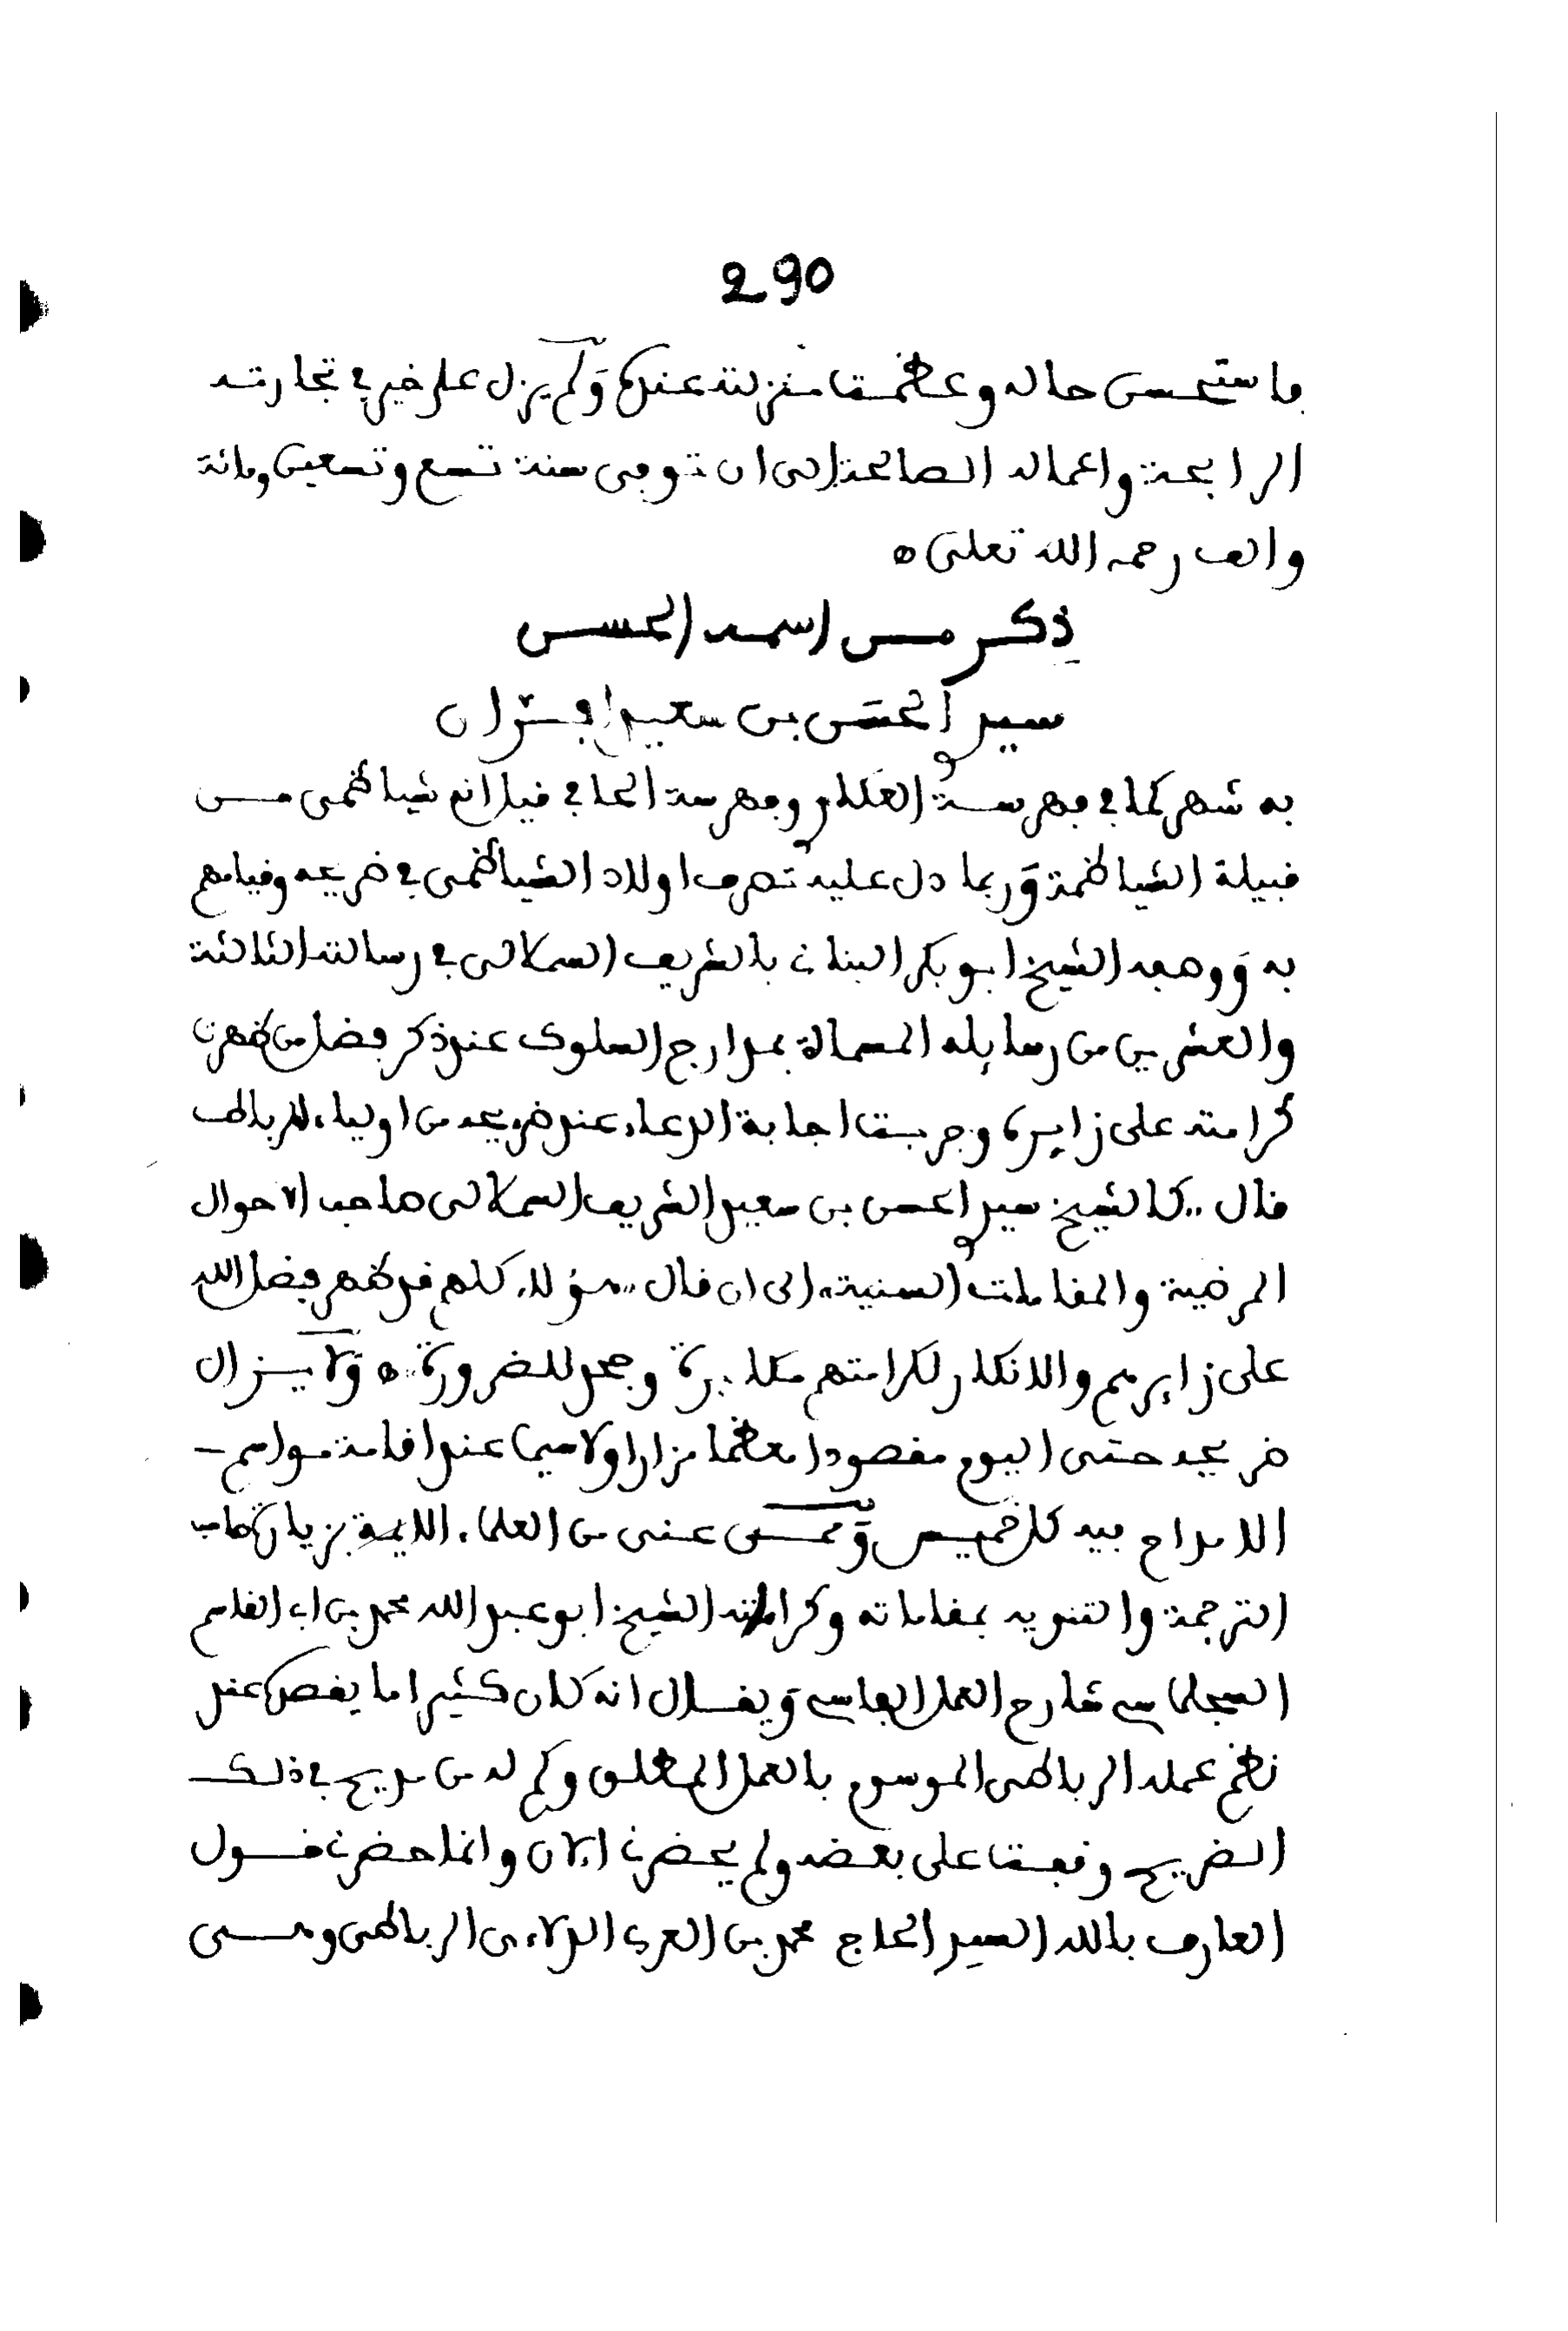 290
فاستحسن حاله وعظمت منزلته عنده ولم يزل على خير في تجارته
الرابحة واعماله الصالحة الى ان توفي سنة تسع وتسعين ومائة
والف رحمه الله تعلى ه
ذكر من اسمه الحسن
سيدي الحسن بن سعيد افيران
به شهر كما في فهرسة العكاري وفهرسة الحافي قيل انه شياظمي من
قبيلة الشياظمة وربما دل عليه تصرف اولاد الشياظمي في ضريحه وقيامهم
به ووصفه الشيخ ابو بكر البناني بالشريف السملالي في رسالته الثالثة
والعشرين من رسايله المسماة بمدارج السلوك عند ذكر فضل من ظهرت
كرامته على زايره وجربت اجابة الدعاء عند ضريحه من اولياء الرباط
قال .. كالشيخ سيدي الحسن بن سعيد الشريف السملالي صاحب الاحوال
المرضية والمقامات السنية، الى ان قال .. هؤلاء كلهم قد ظهر فضل الله
على زايرهم والانكار لكرامتهم مكابرة وجحد للضرورة ه ولا يزال
ضريحه حتى اليوم مقصودا معظما مزارا ولا سيما عند اقامة مواسم
الامداح فيه كل خميس وممن عنى من العلماء الايمة بزيارة صاحب
الترجمة والتنويه بمقاماته وكراماته الشيخ ابو عبد الله محمد بن ابي القاسم
السجلماسي شارح العمل الفاسي ويقال انه كان كثيرا ما يقصده عند
نظم عمله الرباطي الموسوم بالعمل المطلق وكم له من مديح في ذلك
الضريح وقفت على بعضه ولم يحضرني الان وانما حضرني قول
العارف بالله السيد الحاج محمد بن العربي الدلاءي الرباطي ومن